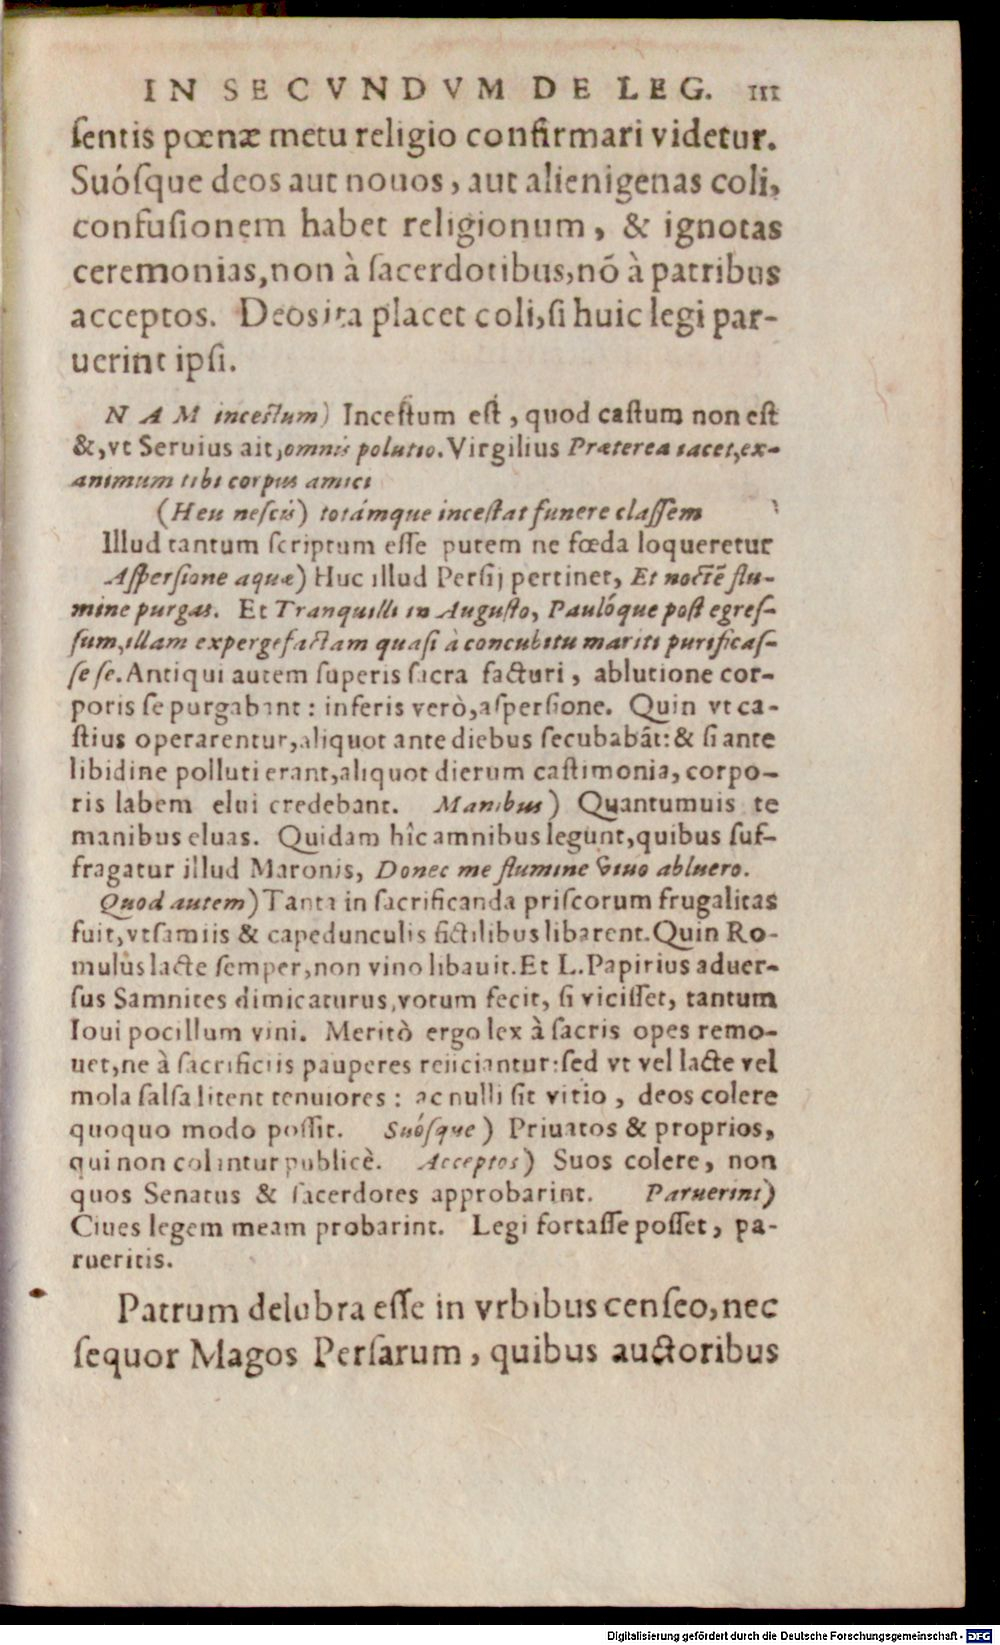 IN SECVNDVM DE LEG. 111
ſentis pœnæ metu religio confirmari videtur.
Suóſque deos aut nouos, aut alienigenas coli,
confuſionem habet religionum, & ignotas
ceremonias, non à ſacerdotibus, nō à patribus
acceptos. Deos ita placet coli, ſi huic legi par-
uerint ipſi.
NAM inceſtum) Inceſtum eſt, quod caſtum non eſt
&, vt Seruius ait, omnis polutio. Virgilius Præterea iacet, ex-
animum tibi corpus amici
(Heu neſcis) totámque inceſtat funere claſſem
Illud tantum ſcriptum eſſe putem ne fœda loqueretur
Aſperſione aquæ) Huc illud Perſij pertinet, Et noctē flu-
mine purgas. Et Tranquilli in Auguſto, Paulóque poſt egreſ-
ſum, illam expergefactam quaſi à concubitu mariti purificaſ-
ſe ſe. Antiqui autem ſuperis ſacra facturi, ablutione cor-
poris ſe purgabant: inferis verò, aſperſione. Quin vt ca-
ſtius operarentur, aliquot ante diebus ſecubabāt: & ſi ante
libidine polluti erant, aliquot dierum caſtimonia, corpo-
ris labem elui credebant. Manibus) Quantumuis te
manibus eluas. Quidam hîc amnibus legunt, quibus ſuf-
fragatur illud Maronis, Donec me flumine viuo abluero.
Quod autem) Tanta in ſacrificanda priſcorum frugalitas
fuit, vt ſamiis & capedunculis fictilibus libarent. Quin Ro-
mulus lacte ſemper, non vino libauit. Et L. Papirius aduer-
ſus Samnites dimicaturus, votum fecit, ſi viciſſet, tantum
Ioui pocillum vini. Meritò ergo lex à ſacris opes remo-
uet, ne à ſacrificiis pauperes reiiciantur: ſed vt vel lacte vel
mola ſalſa litent tenuiores: ac nulli ſit vitio, deos colere
quoquo modo poſſit. Suóſque) Priuatos & proprios,
qui non colantur publicè. Acceptos) Suos colere, non
quos Senatus & ſacerdotes approbarint. Paruerint)
Ciues legem meam probarint. Legi fortaſſe poſſet, pa-
rueritis.
Patrum delubra eſſe in vrbibus cenſeo, nec
ſequor Magos Perſarum, quibus auctoribus
Digitalisierung gefördert durch die Deutsche Forschungsgemeinschaft - DFG